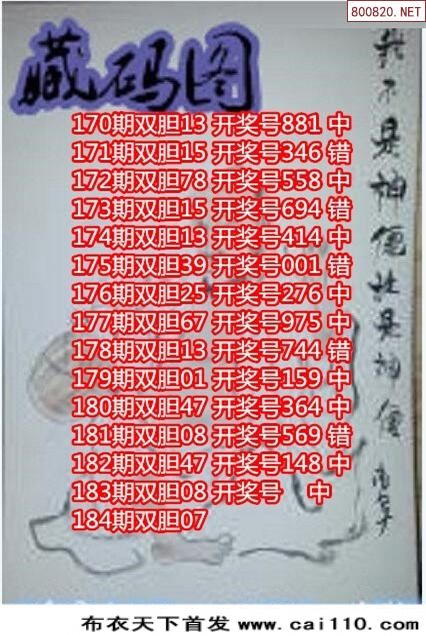 800820.NET
藏码图
170期双胆13 开奖号881 中
171期双胆15 开奖号346 错
172期双胆78 开奖号558 中
173期双胆15 开奖号694 错
174期双胆13 开奖号414 中
175期双胆39 开奖号001 错
176期双胆25 开奖号276 中
177期双胆67 开奖号975 中
178期双胆13 开奖号744 错
179期双胆01 开奖号159 中
180期双胆47 开奖号364 中
181期双胆08 开奖号569 错
182期双胆47 开奖号148 中
183期双胆08 开奖号 中
184期双胆07
我不是神仙
是神仙
布衣天下首发 www.cai110.com